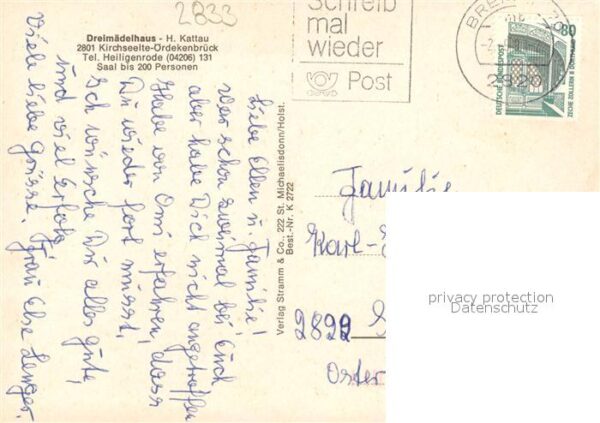 2833
Dreimädelhaus - H. Kattau
2801 Kirchseelte-Ordekenbrück
Tel. Heiligenrode (04206) 131
Saal bis 200 Personen
Schreib
mal
wieder
Post
BREMEN
2820
80
DEUTSCHE BUNDESPOST
ZECHE ZOLLERN II DORTMUND
Liebe Ellen u. Familie!
War schon zweimal bei Euch
aber habe Dich nicht angetroffen
Habe von Omi erfahren, dass
Du wieder fort musst.
Ich wünsche Dir alles gute,
und viel Erfolg
Viele liebe Grüsse. Frau Else Lenger.
Verlag Stramm & Co., 222 St. Michaelisdonn/Holst.
Best.-Nr. K 2722
Familie
Karl-
2822
Oster
privacy protection
Datenschutz